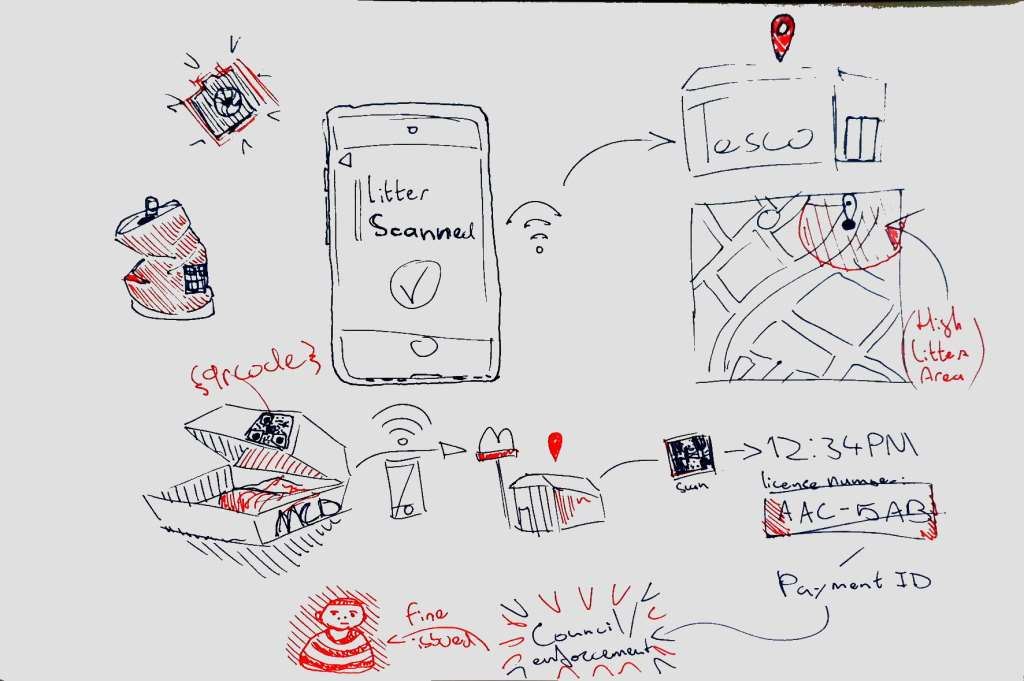 Litter
Scanned
Tesco
(High
Litter
Area)
{qrcode}
MCD
scan
12:34PM
license number:
AAC-5AB
Payment ID
Council/
enforcement
fine
issued